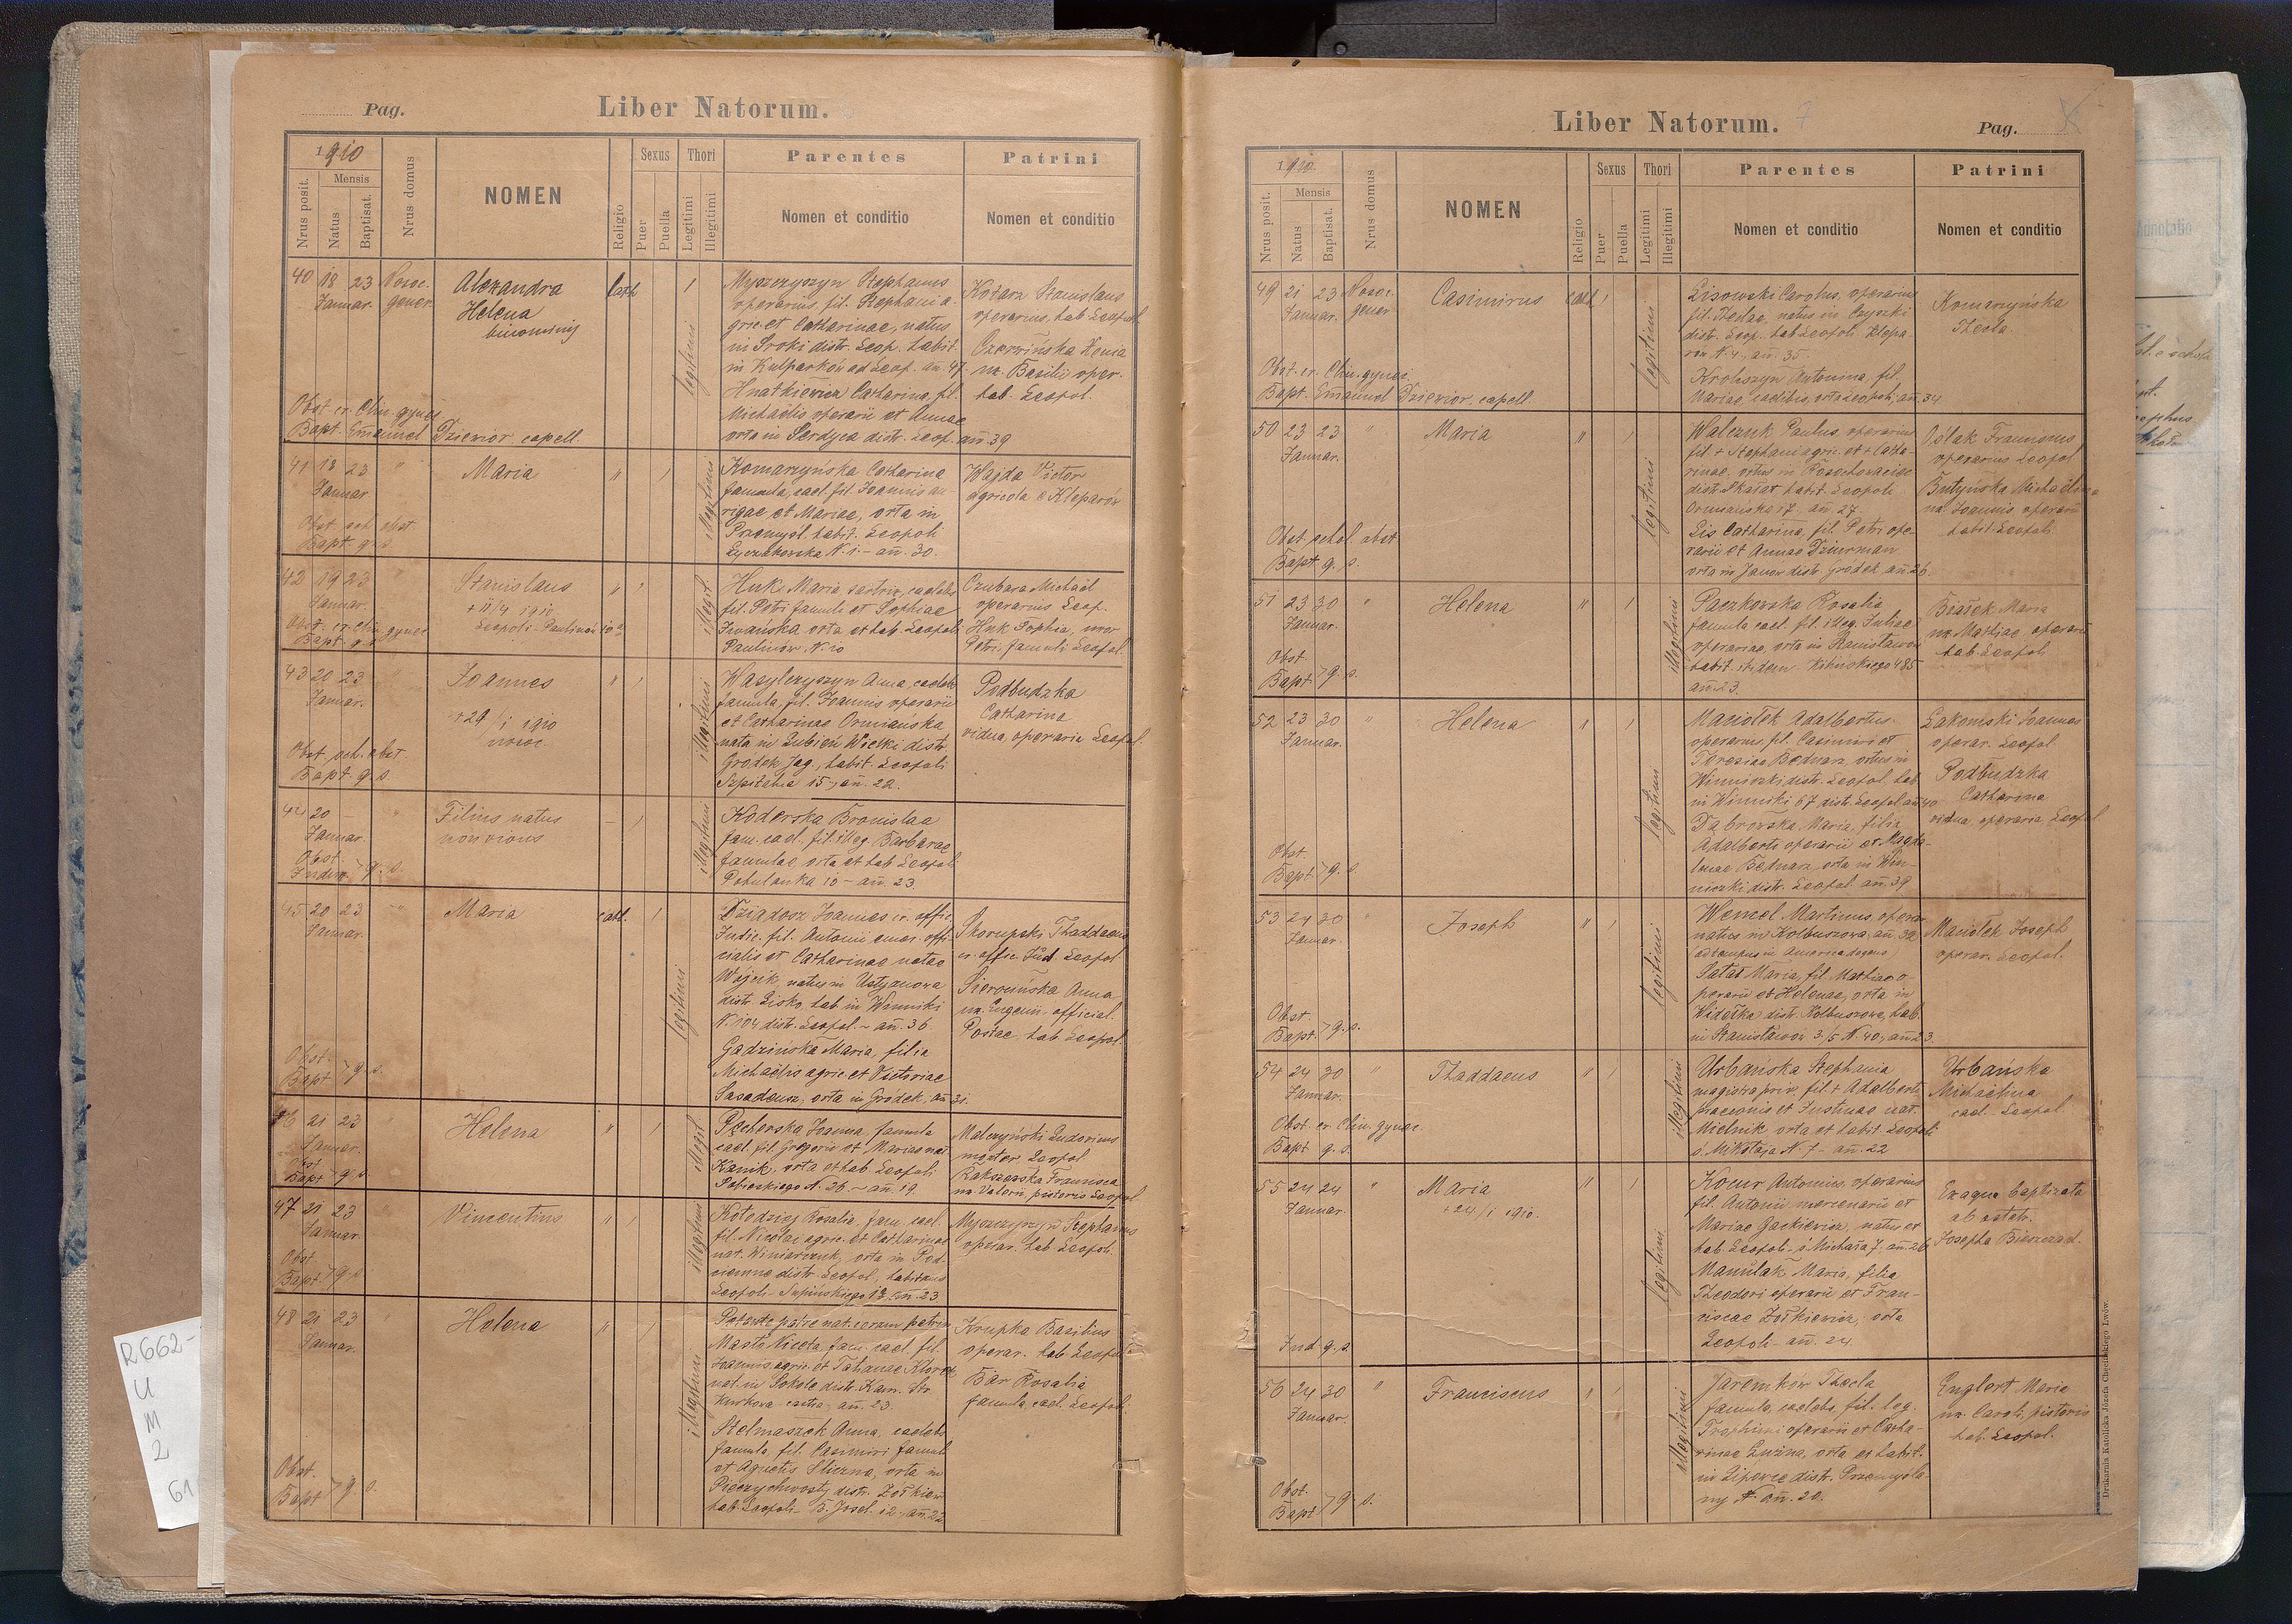 Pag.
Liber Natorum.
1910
Mensis
Nrus posit.
Natus
Baptisat.
Nrus domus
NOMEN
Religio
Sexus
Puer
Puella
Thori
Legitimi
Illegitimi
Parentes
Nomen et conditio
Patrini
Nomen et conditio
40 18 23
Januar. gener.
Alexandra
Helena
binominis
cath
legitimi
Myszczyszyn Stephanus
operarius, fil. Stephani a-
gric. et Catharinae, natus
in Sroki distr. Leop. habit.
in Kulparków ad Leop. an. 47
Hnatkiewicz Catharina, fil.
Michaëlis operarii et Annae
orta in Serdyca distr. Leop. añ 39
Stanislaus
operarius, hab. Leopol.
Czerwińska Xenia
ux. Basilii oper.
hab. Leopol.
Obst. er. Clin. gynec.
Bapt. Emanuel Dziewior capell.
41 18 23 "
Januar
Maria
"
illegitimi
Komarzyńska Catharina
famula, cael. fil. Joannis au-
rigae et Mariae, orta in
Przemyśl, habit. Leopoli
Łyczakowska N. 1 - añ. 30.
Wajda Victor
agricola e Kleparów
Obst. sch. obst.
Bapt. q. s.
42 19 23 "
Januar.
Stanislaus
+ 11/4 1910
Leopoli - Paulinów 10
"
illegit.
Huk Maria, sartrix, caelebs
fil. Petri famuli et Sophiae
Iwańska orta et hab. Leopoli
Paulinów N. 10
Czubara Michaël
operarius Leop.
Huk Sophia, uxor
Petri famuli Leopol.
Obst. er. clin. gynec
Bapt. q. s.
43 20 23 "
Januar.
Joannes
+ 29/1 1910
nosoc.
"
illegitimi
Wasylczyszyn Anna, caelebs
famula, fil. Joannis operarii
et Catharinae Ormiańska
nata in Lubień Wielki distr.
Grodek Jag., habit. Leopoli
Szpitalna 15, añ. 22.
Podbudzka
Catharina
vidua operaria Leopol.
Obst. sch. obst.
Bapt. q. s.
44 20 - "
Januar.
Filius natus
non vivus
-
illegitimi
Koderska Bronislaa
fam. cael. fil. illeg. Barbarae
famulae, orta et hab. Leopol.
Pohulanka 10 - añ. 23.
Obst.
q. s.
45 20 23 "
Januar.
Maria
cath.
legitimi
Dziadosz Joannes c. r. offic.
Judic. fil. Antonii emer. offi-
cialis et Catharinae natae
Wójcik, natus in Ustyanowa
distr. Lisko, hab. in Winniki
N. 104 distr. Leopol. - añ. 36
Gadzińska Maria, filia
Michaëlis agric. et Victoriae
Sasadeusz, orta in Grodek, añ 31.
Skorupski Thaddaeus
c. r. offic. Jud. Leopol
Anna
ux. Eugenii official.
Postae, hab. Leopol.
Obst.
Bapt. q. s.
46 21 23 "
Januar.
Helena
"
illegit.
Joanna, famula
cael. fil. Gregorii et Mariae nat.
orta et hab. Leopoli
Sobieskiego N. 26 - añ. 19.
Malczyński Ludovicus
Leopol
Francisca
ux. Valerii, pistoris Leopol
Obst.
Bapt q. s.
47 21 23
Januar.
Vincentius
"
illegitimi
Kołodziej Rosalia, fam. cael.
fil. Nicolai agric. et Catharinae
nat. Winiarczuk, orta in Pod-
ciemne distr. Leopol., habitans
Leopoli - Supińskiego 12 añ. 23
Myszczyszyn Stephanus
operar. hab. Leopoli.
Obst
Bapt q. s.
48 21 23 "
Januar.
Helena
"
illegitimi
Masło Niceta, fam. cael. fil.
Joannis agric. et Tatianae
nat. in Sokole distr. Kam. Str.
Kurkowa añ. 23.
Stelmaszek Anna, caelebs
famula, fil. Casimiri famul.
et Agnetis Śliczna, orta in
Pieczychwosty distr. Żołkiew
hab. Leopoli - B. Josel. 12, añ. 22
Krupka Basilius
operar. hab. Leopol.
Bar Rosalia
famula, cael. Leopoli.
Obst.
Bapt q. s.
Liber Natorum. 7
Pag.
1910
Mensis
Nrus posit.
Natus
Baptisat.
Nrus domus
NOMEN
Religio
Sexus
Puer
Puella
Thori
Legitimi
Illegitimi
Parentes
Nomen et conditio
Patrini
Nomen et conditio
49 21 23 Nosoc.
Januar. gener
Casimirus
cath
legitimi
Lisowski Carolus, operarius
fil. Theclae, natus in Czyszki
distr. Leop. hab. Leopoli Klepa-
rów N. 4, añ. 35.
Antonina, fil.
Mariae caelibis, orta Leopoli, añ. 34
Komarzyńska
Thecla.
Obst. er. Clin. gynec.
Bapt. Emanuel Dziewior, capell.
50 23 23 "
Januar.
Maria
"
legitimi
Walczuk Paulus, operarius
fil. + Stephani agric. et + Catha-
rinae, ortus in Rosochowaciec
distr. Skałat habit. Leopoli
Ormiańska 17. añ. 27.
Lis Catharina, fil. Petri ope-
rarii et Annae Dziurman
orta in Janów distr. Grodek, añ 26.
Oślak Franciscus
operarius Leopol
Butyńska Michaëlina
ux. Joannis operarii
habit. Leopoli
Obst. schol. obst.
Bapt. q. s.
51 23 30 "
Januar.
Helena
"
illegitimi
Paczkowska Rosalia
famula cael. fil. illeg. Juliae
operariae, orta in Stanisławów
habit. ibidem Kilińskiego 485
añ. 23.
Białek Maria
ux. Mathiae operarii
hab. Leopoli
Obst.
Bapt q. s.
52 23 30 "
Januar.
Helena
"
legitimi
Maciołek Adalbertus
operarius, fil. Casimiri et
Theresiae Bednarz, ortus in
Winniczki distr. Leopol. hab.
in Winniki 67 distr. Leopol añ 40
Dąbrowska Maria, filia
Adalberti operarii et Magda-
lenae Bednarz, orta in Win-
niczki distr. Leopol. añ. 39
Łakomski Joannes
operar. Leopol
Podbudzka
Catharina
vidua operaria Leopol
Obst.
Bapt. q. s.
53 24 30 "
Januar.
Joseph
"
legitimi
Martinus, operar.
natus in Kolbuszowa, añ 32
(ad tempus in America degens)
Sałat Maria, fil. Mathiae o-
perarii et Helenae, orta in
Widełka distr. Kolbuszowa, hab.
in Stanisławów 3/5 N. 40, añ 23.
Maciołek Joseph
operar. Leopol.
Obst.
Bapt. q. s.
54 24 30 "
Januar.
Thaddaeus
"
illegitimi
Urbańska Stephania
magistra priv., fil. + Adalberti
et Justinae nat.
Mielnik orta et habit. Leopoli
ś. Mikołaja N. 7 - añ. 22
Urbańska
Michaëlina
cael. Leopol.
Obst. er. Clin. gynec.
Bapt q. s.
55 24 24 "
Januar.
Maria
+ 24/1 1910.
"
legitimi
Kocur Antonius, operarius
fil. Antonii mercenarii et
Mariae Gackiewicz, natus et
hab. Leopoli - ś. Michała 7. añ. 26
Manulak Maria, filia
Theodori operarii et Fran-
ciscae Żołkiewicz, orta
Leopoli - añ. 24.
Ex aqua baptizata
ab obstetr.
Josepha Bieszczad.
Ind q. s.
56 24 30 "
Januar.
Franciscus
illegitimi
Jaremkow Thecla
famula, caelebs, fil. leg.
Trophimi operarii et Catha-
rinae orta et habit.
in Lipowce distr. Przemyśla-
ny añ. 20.
Englert Maria
ux. Caroli, pistoris
hab. Leopol.
Obst.
Bapt q. s.
Drukarnia Katolicka Józefa Chęcińskiego Lwów.
R662-
U
M
2
61